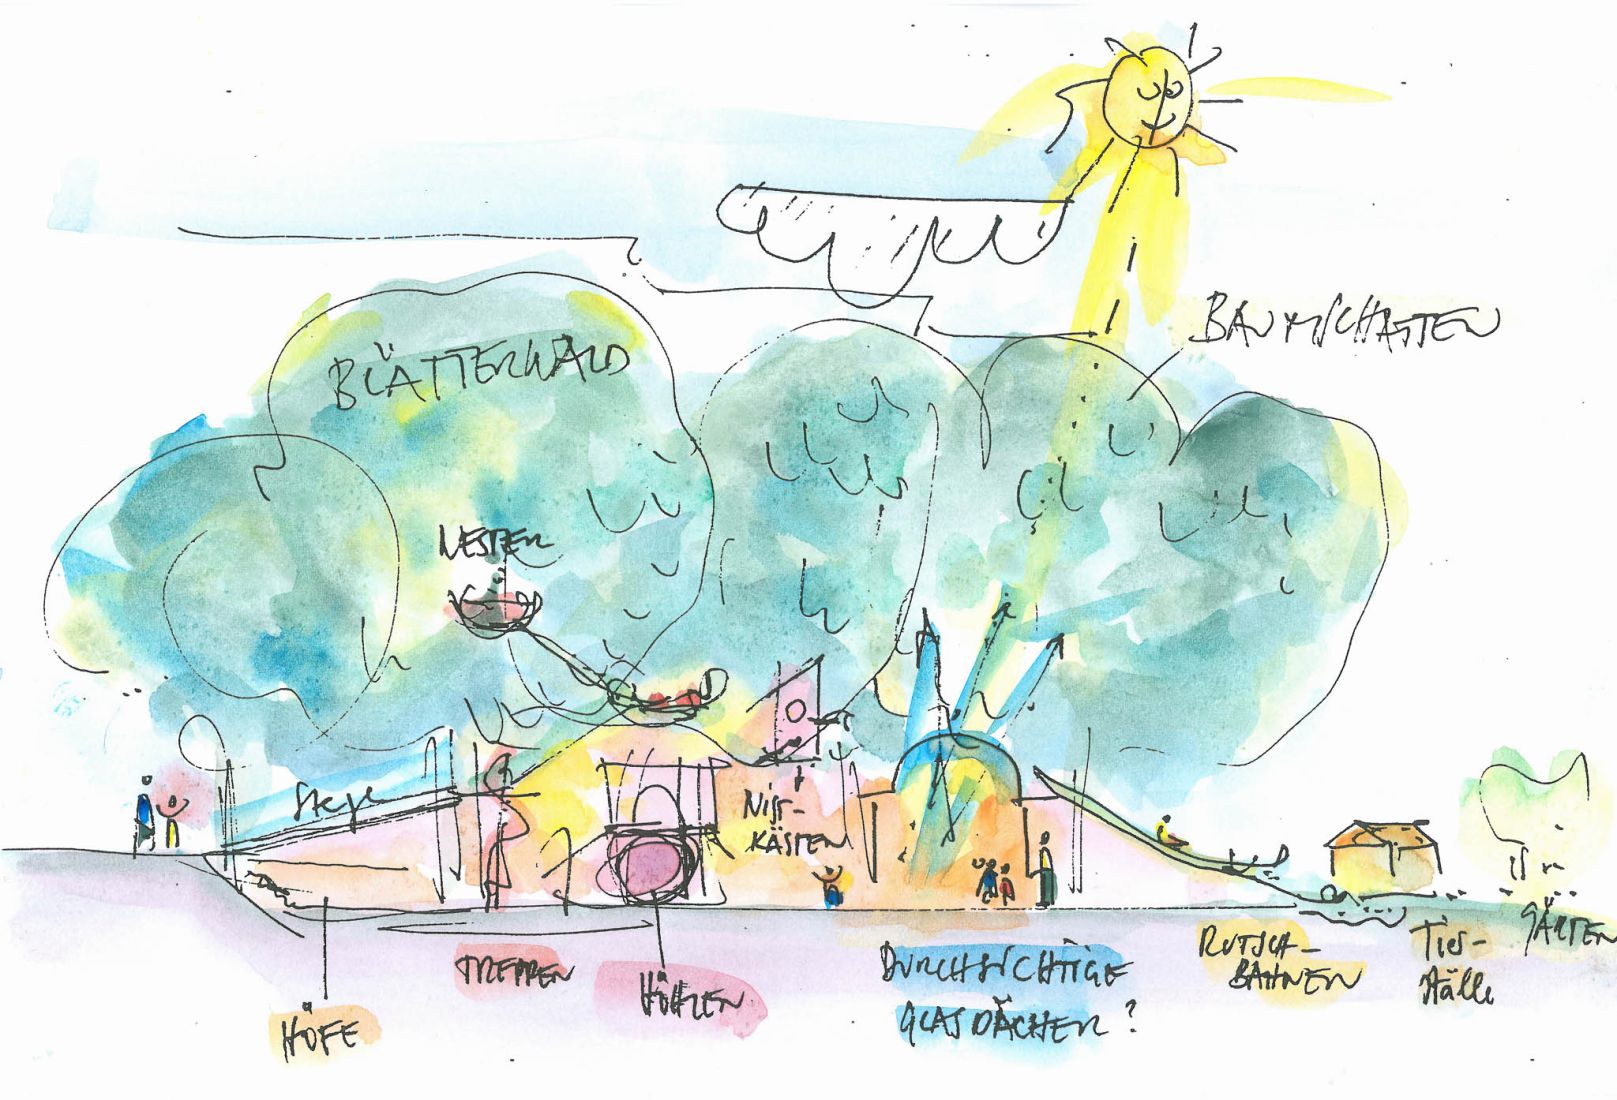 BAUMSCHATTEN
BLÄTTERWALD
NESTER
Stege
NIST-
KÄSTEN
HÖFE
TREPPEN
HÖHLEN
DURCHSICHTIGE
GLASDÄCHER?
RUTSCH-
BAHNEN
TIER-
ställe
GÄRTEN